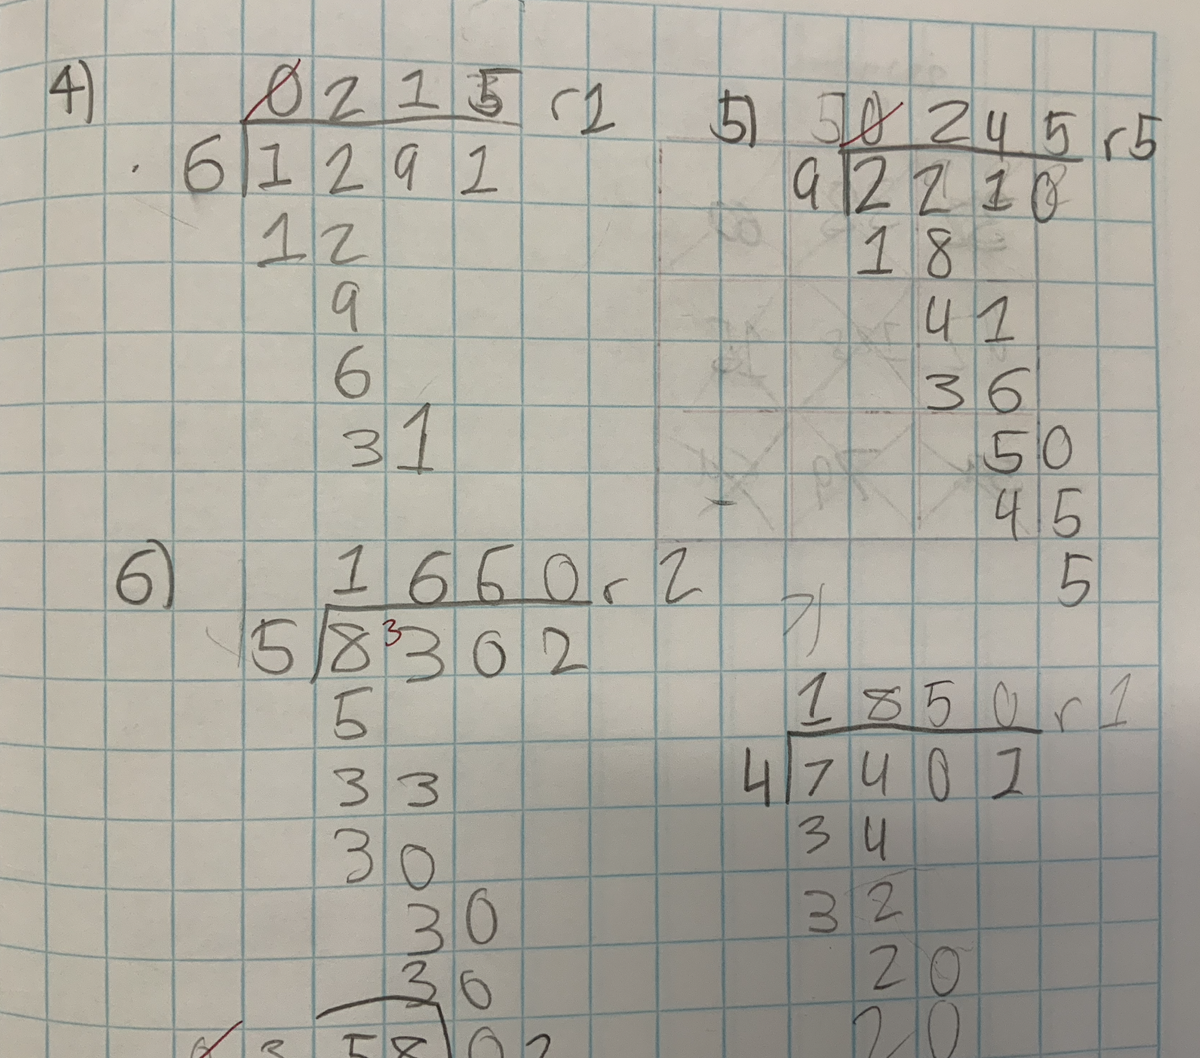 4)
0 2 1 5 r1
6 1 2 9 1
1 2
9
6
3 1
5)
5 0 2 4 5 r5
9 2 2 1 0
1 8
4 1
3 6
5 0
4 5
5
6)
1 6 6 0 r 2
5 8 3 3 0 2
5
3 3
3 0
3 0
3 0
7)
1 8 5 0 r 1
4 7 4 0 1
3 4
3 2
2 0
2 0